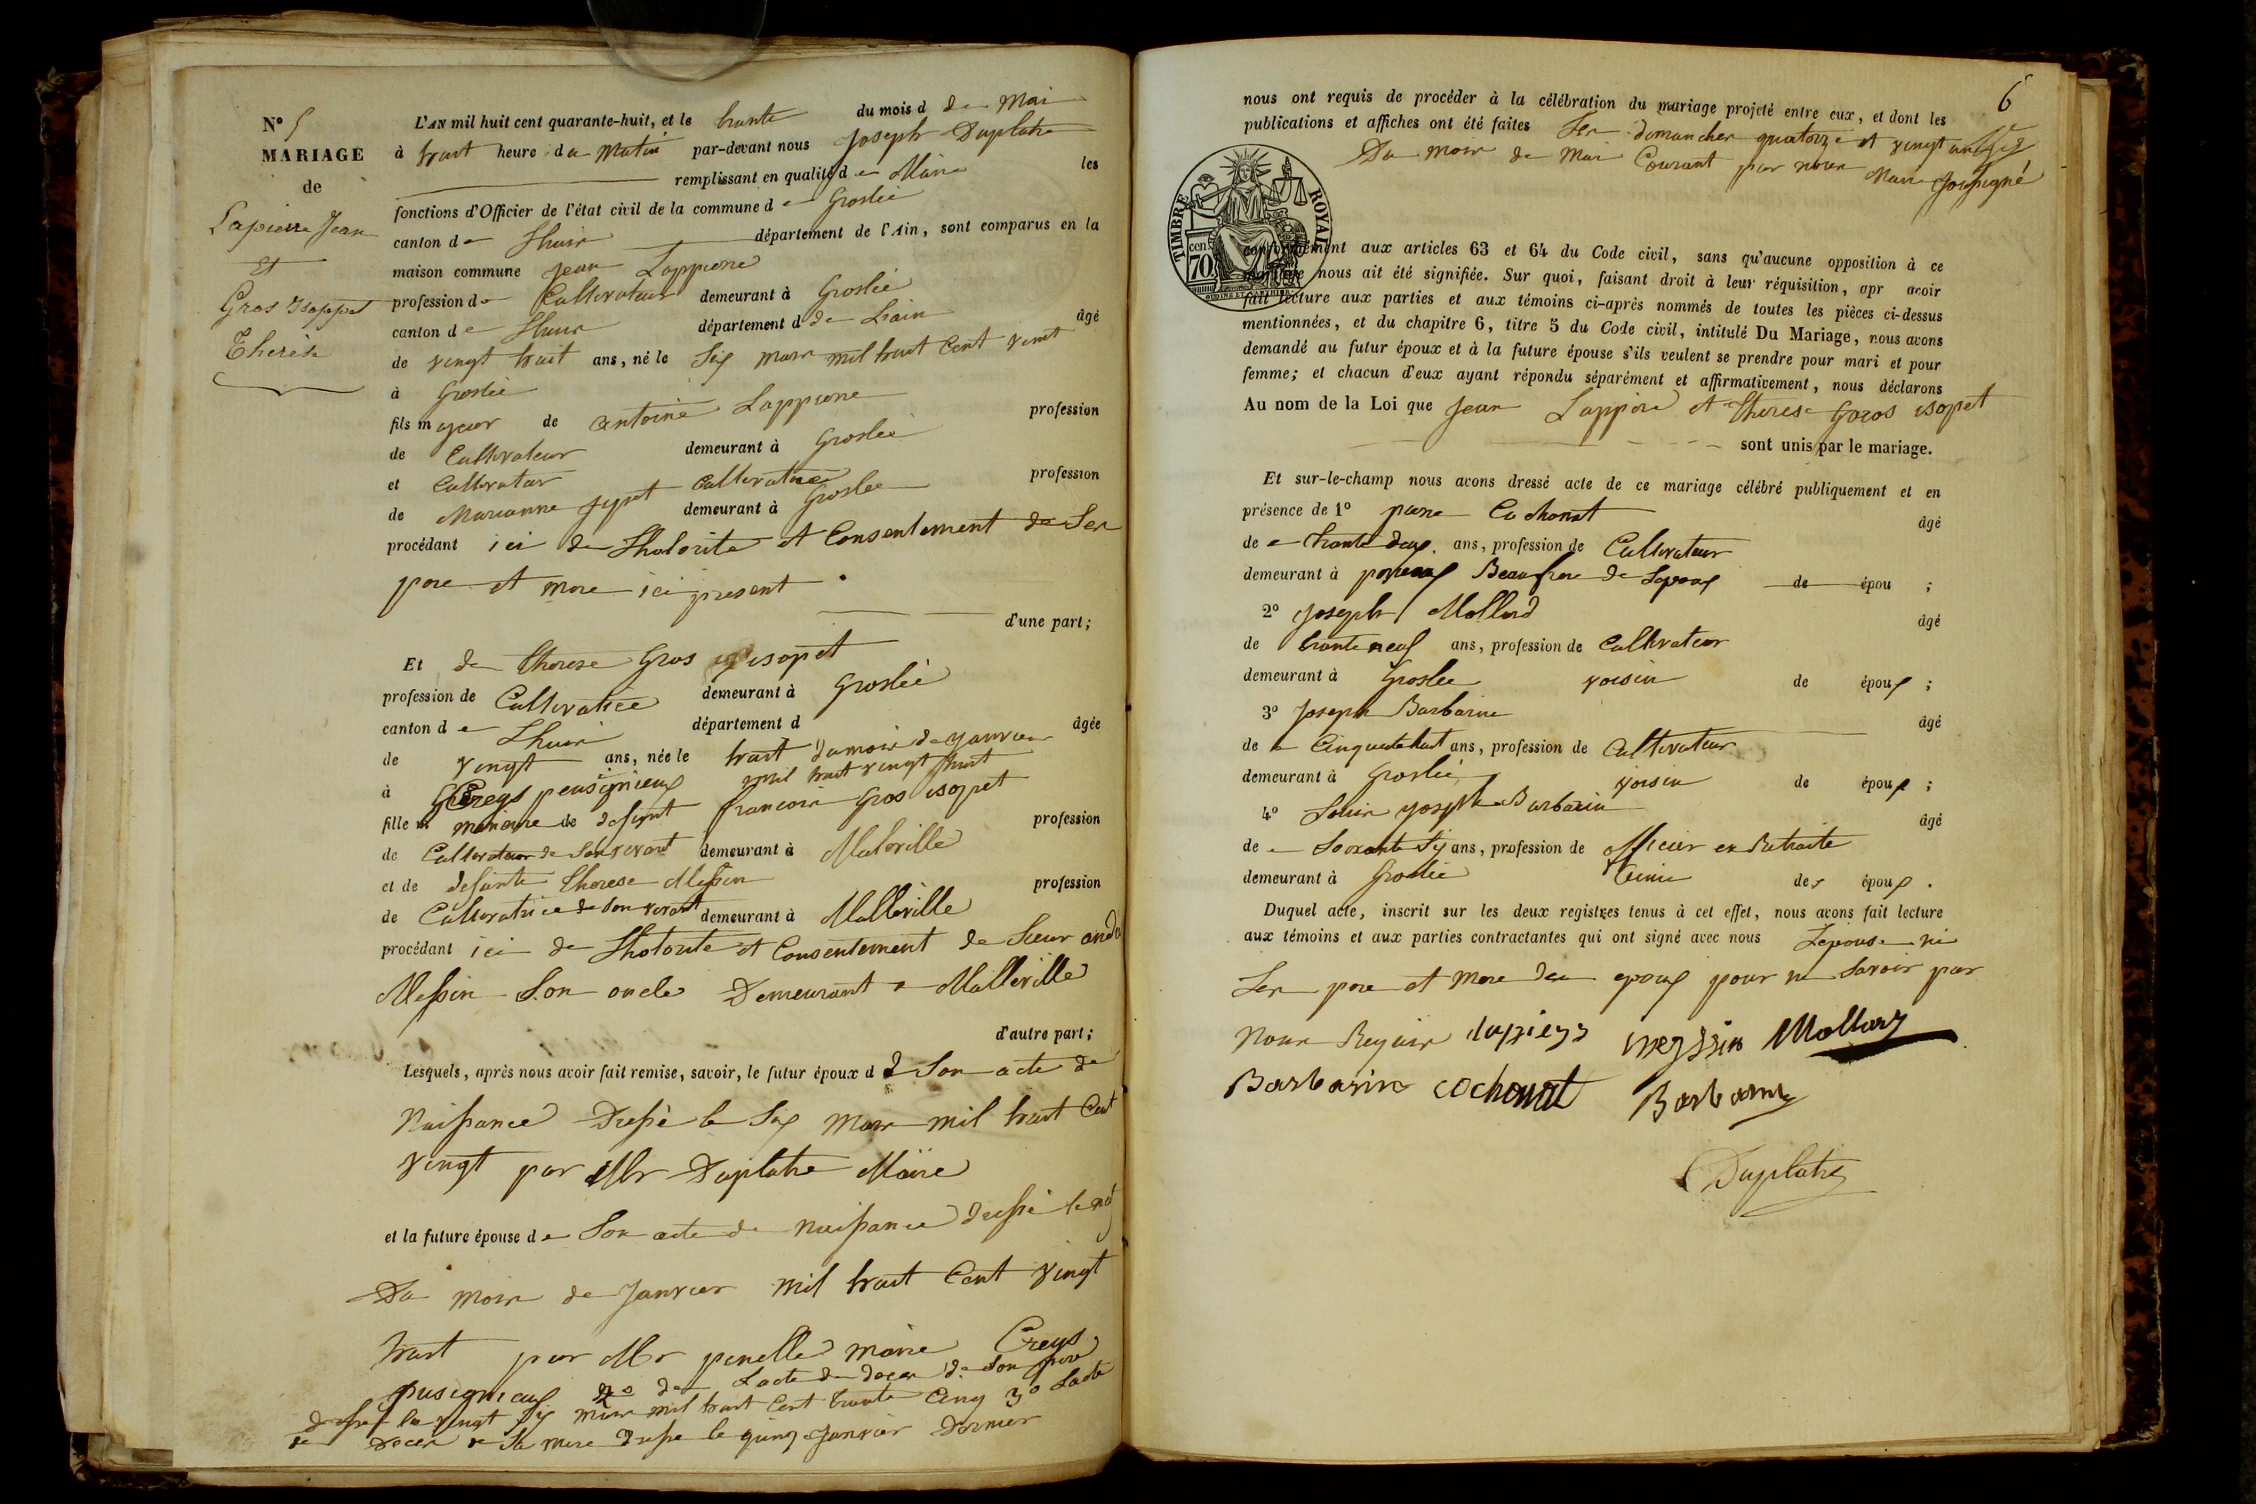 N° 5
MARIAGE
de
Lapierre Jean
Et
Gros Isoppet
Therèse
L'AN mil huit cent quarante-huit, et le trante du mois d de Mai
à huit heure du Matin par-devant nous Joseph Duplatre
remplissant en qualité d e Maire les
fonctions d'Officier de l'état civil de la commune d e Groslée
canton d e Lhuis département de l'Ain, sont comparus en la
maison commune Jean Lappierre
profession d e Cultivateur demeurant à Groslée
canton d e Lhuis département d de Lain âgé
de vingt huit ans, né le Six mars mil huit Cent vint
à Groslée
fils m ajeur de antoine Lappierre profession
de Cultivateur demeurant à Groslée
et Cultivateur Cultivatrice profession
de Marianne demeurant à Groslée
procédant ici de Lhotorité et Consentement de Ses
pere et mere ici présent
d'une part;
Et de therese Gros isopet
profession de Cultivatrice demeurant à Groslée
canton d e Lhuis département d âgée
de vingt ans, née le huit du mois de janvier
à Creys pusignieux mil huit vingt huit
fille m mineure de defunt francois Gros isopet profession
de Cultivateur de Son vivant demeurant à Maleville
et de defunte therese Messin profession
de Cultivatrice de Son vivant demeurant à Malleville
procédant ici de Lhotorité et Consentement de Sieur
Messin Son oncle Demeurant a Malleville
d'autre part;
Lesquels, après nous avoir fait remise, savoir, le futur époux d e Son acte de
Naissance Dressé le Six Mars mil huit Cent
vingt par Mr Duplatre Maire
et la future épouse d e Son acte de naissance dressé le
Du mois de Janvier mil huit Cent vingt
huit par Mr penelle maire Creys
pusignieux 2° de Lacte de deces de Son pere
dressé le vingt Six mars mil huit Cent trante Cinq 3° Lacte
de Deces de Sa mere Dressé le quinze Janvier Dernier
6
nous ont requis de procéder à la célébration du mariage projeté entre eux, et dont les
publications et affiches ont été faites Les dimanches quatorze et vingt
Du mois de Mai Courant par nous Maire Soussigné
TIMBRE ROYAL
70 cen
conformément aux articles 63 et 64 du Code civil, sans qu'aucune opposition à ce
mariage nous ait été signifiée. Sur quoi, faisant droit à leur réquisition, apr avoir
fait lecture aux parties et aux témoins ci-après nommés de toutes les pièces ci-dessus
mentionnées, et du chapitre 6, titre 5 du Code civil, intitulé Du Mariage, nous avons
demandé au futur époux et à la future épouse s'ils veulent se prendre pour mari et pour
femme; et chacun d'eux ayant répondu séparément et affirmativement, nous déclarons
Au nom de la Loi que Jean Lappire et therese Gros isopet
sont unis par le mariage.
Et sur-le-champ nous avons dressé acte de ce mariage célébré publiquement et en
présence de 1° piere Cochonat âgé
de trante deux ans, profession de Cultivateur
demeurant à Beaufrere de Lepoux de épou ;
2° Joseph Mollard âgé
de trante neuf ans, profession de Cultivateur
demeurant à Groslée voisin de époux ;
3° Joseph Barbarin âgé
de Cinquante huit ans, profession de Cultivateur
demeurant à Groslée voisin de époux ;
4° Louis Joseph Barbarin âgé
de Soixante Six ans, profession de officier en Retraite
demeurant à Groslée des époux .
Duquel acte, inscrit sur les deux registres tenus à cet effet, nous avons fait lecture
aux témoins et aux parties contractantes qui ont signé avec nous Lepouse ni
Les pere et mere des epoux pour ne Savoir par
Nous Requis lapierre messin Mollard
Barbarin cochonat Barbarin
Duplatre